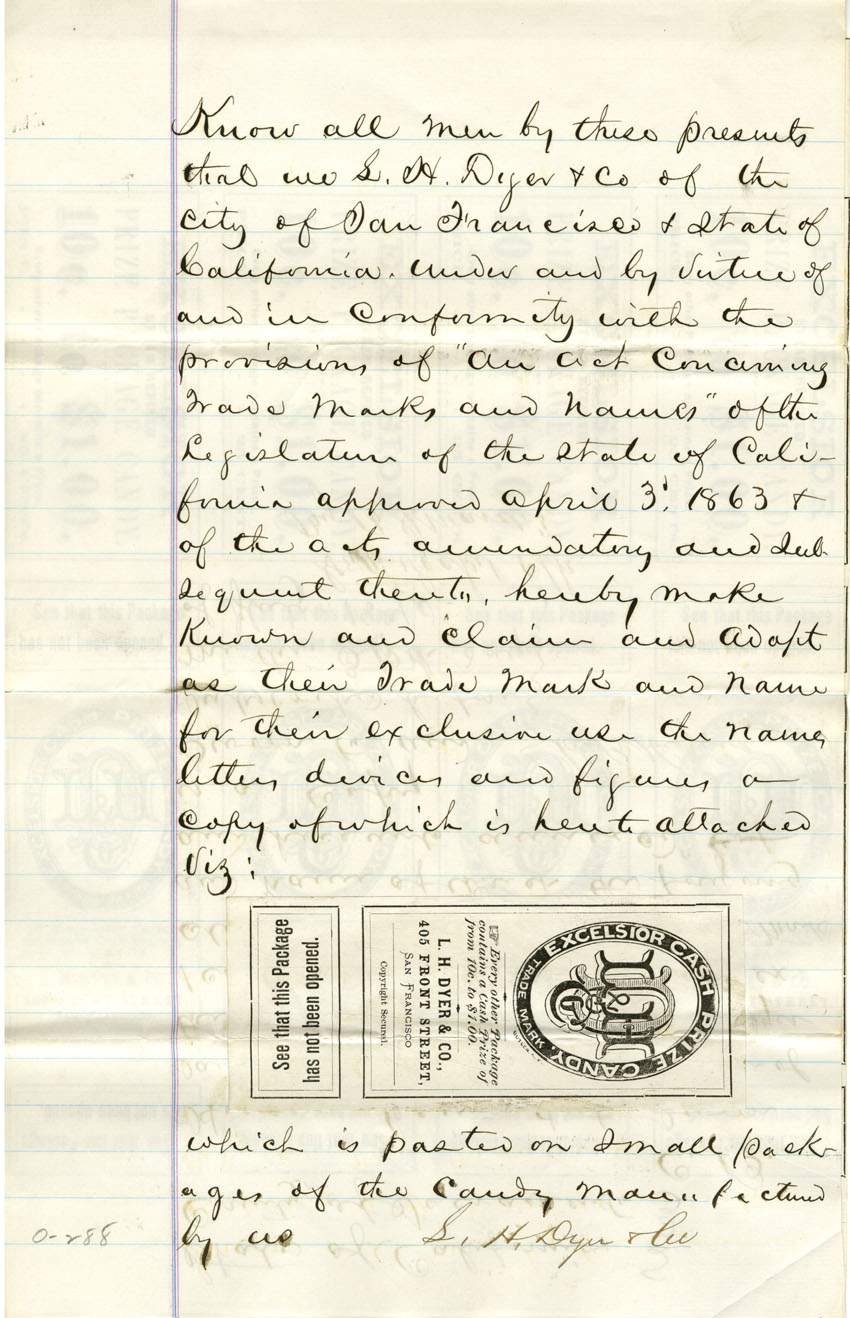 Know all men by these presents
that we L. H. Dyer & Co of the
city of San Francisco & State of
California. under and by virtue of
and in conformity with the
provisions of "An act Concerning
Trade Marks and Names" of the
Legislature of the State of Cali-
fornia approved April 3d. 1863 &
of the acts amendatory and sub-
sequent thereto, hereby make
Known and claim and adopt
as their Trade Mark and name
for their exclusive use the names
letters devices and figures a
copy of which is hereto attached
Viz:
EXCELSIOR CASH PRIZE CANDY
TRADE MARK
☞ Every other Package
contains a Cash Prize of
from 10c. to $1.00.
L. H. DYER & CO.,
405 FRONT STREET,
SAN FRANCISCO
Copyright Secured.
See that this Package
has not been opened.
which is pasted on small pack-
ages of the Candy Manufactured
by us L. H. Dyer & Co
0-288